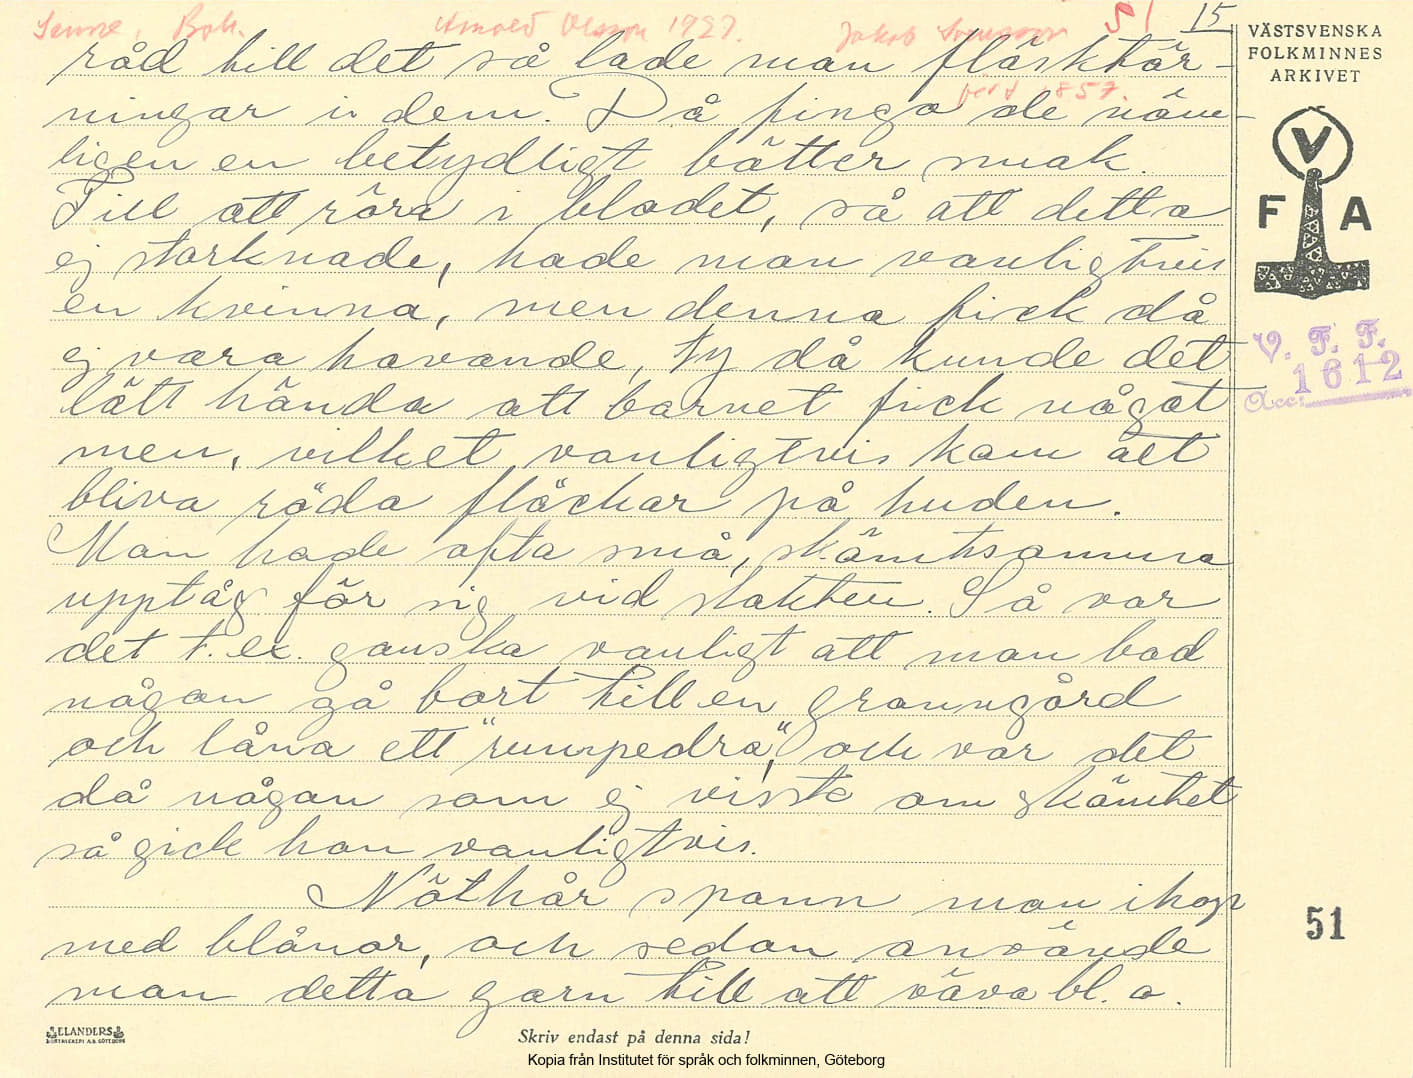 Sanne, Boh. Arnold Olsson 1927. Jakob Svensson 51 15
född 1857.
råd till det så lade man fläsktär-
ningar i dem. Då fingo de näm-
ligen en betydligt bätter smak.
Till att röra i blodet, så att detta
ej storknade, hade man vanligtvis
en kvinna, men denna fick då
ej vara havande, ty då kunde det
lätt hända att barnet fick något
men, vilket vanligtvis kom att
bliva röda fläckar på huden.
Man hade ofta små, skämtsamma
upptåg för sig vid slakten. Så var
det t. ex. ganska vanligt att man bad
någon gå bort till en granngård
och låna ett "rumpedra", och var det
då någon som ej visste om skämtet
så gick han vanligtvis.
Nöthår spann man ihop
med blånor, och sedan använde
man detta garn till att väva bl. a.
VÄSTSVENSKA
FOLKMINNES
ARKIVET
V
F A
V. F. F.
Acc: 1612
51
ELANDERS
Skriv endast på denna sida!
Kopia från Institutet för språk och folkminnen, Göteborg